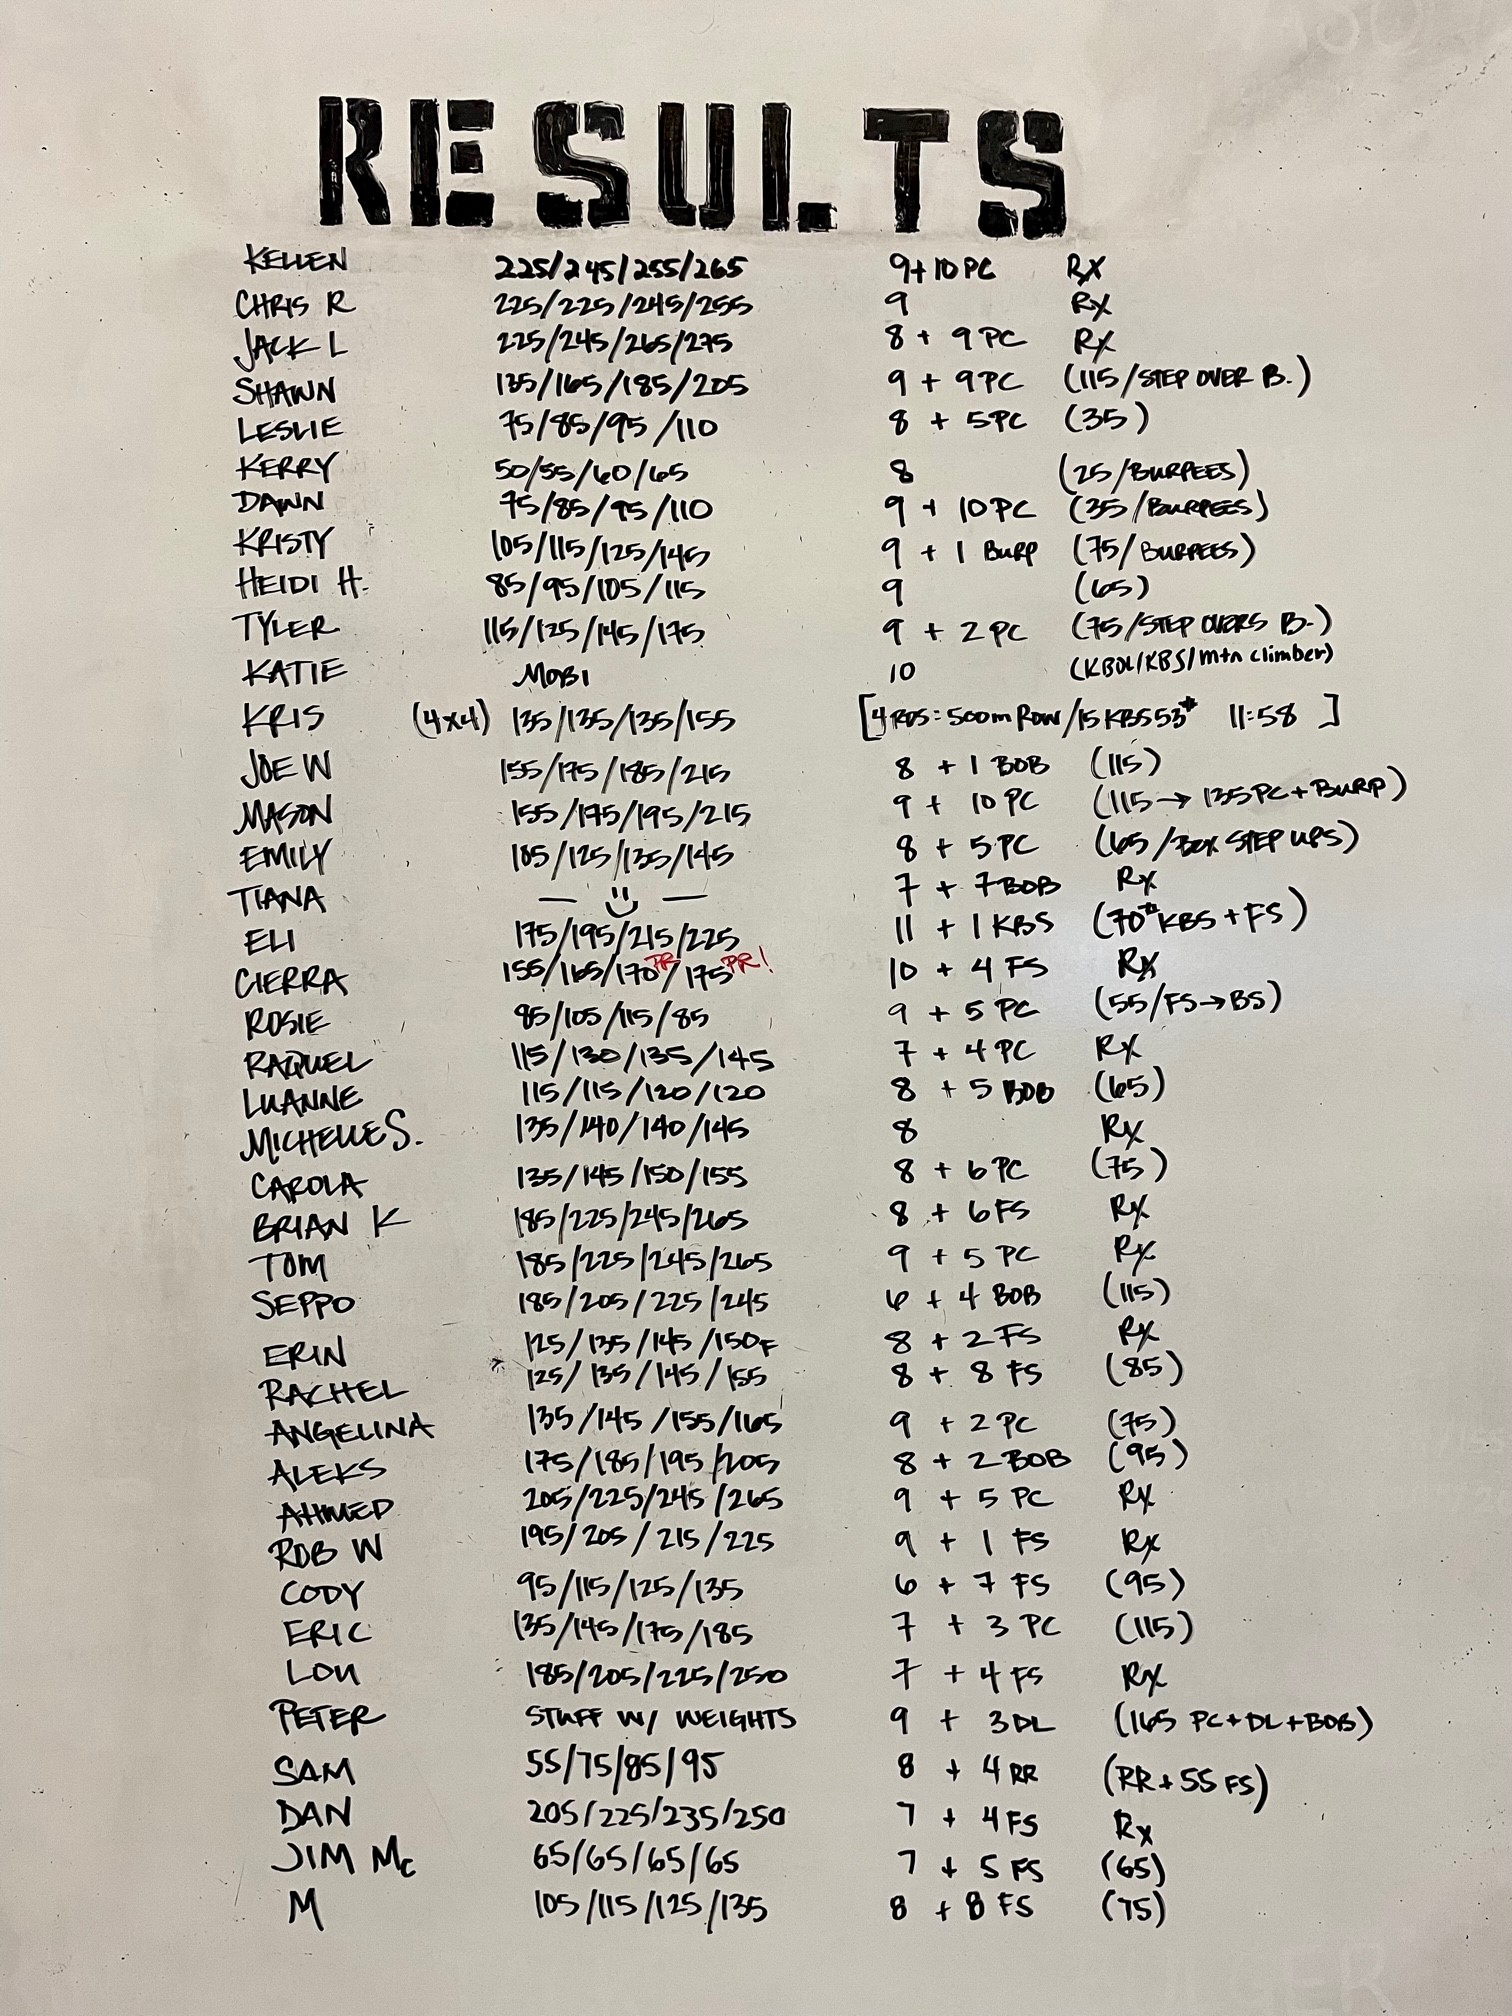 RESULTS
KELLEN 225/245/255/265 9+10 PC RX
CHRIS R 225/225/245/255 9 RX
JACK L 225/245/265/275 8 + 9 PC RX
SHAWN 135/165/185/205 9 + 9 PC (115/STEP OVER B.)
LESLIE 75/85/95/110 8 + 5 PC (35)
KERRY 50/55/60/65 8 (25/BURPEES)
DAWN 75/85/95/110 9 + 10 PC (35/BURPEES)
KRISTY 105/115/125/145 9 + 1 BURP (75/BURPEES)
HEIDI H. 85/95/105/115 9 (65)
TYLER 115/125/145/175 9 + 2 PC (75/STEP OVERS B.)
KATIE MOBI 10 (KBDL/KBS/mtn climber)
KRIS (4x4) 135/135/135/155 [4 RDS = 500m ROW/15 KBS 53# 11:58 ]
JOE W 155/175/185/215 8 + 1 BOB (115)
MASON 155/175/195/215 9 + 10 PC (115→135 PC + BURP)
EMILY 105/125/135/145 8 + 5 PC (65/BOX STEP UPS)
TIANA — — 7 + 7 BOB RX
ELI 175/195/215/225 11 + 1 KBS (70# KBS + FS)
CIERRA 155/165/170 PR/175 PR! 10 + 4 FS RX
ROSIE 85/105/115/85 9 + 5 PC (55/FS→BS)
RAQUEL 115/130/135/145 7 + 4 PC RX
LUANNE 115/115/120/120 8 + 5 BOB (65)
MICHELLE S. 135/140/140/145 8 RX
CAROLA 135/145/150/155 8 + 6 PC (75)
BRIAN K 185/225/245/265 8 + 6 FS RX
TOM 185/225/245/265 9 + 5 PC RX
SEPPO 185/205/225/245 6 + 4 BOB (115)
ERIN 125/135/145/150F 8 + 2 FS RX
RACHEL 125/135/145/155 8 + 8 FS (85)
ANGELINA 135/145/155/165 9 + 2 PC (75)
ALEKS 175/185/195/205 8 + 2 BOB (95)
AHMED 205/225/245/265 9 + 5 PC RX
ROB W 195/205/215/225 9 + 1 FS RX
CODY 95/115/125/135 6 + 7 FS (95)
ERIC 135/145/175/185 7 + 3 PC (115)
LOU 185/205/225/250 7 + 4 FS RX
PETER STUFF W/ WEIGHTS 9 + 3 DL (165 PC+DL+BOB)
SAM 55/75/85/95 8 + 4 RR (RR + 55 FS)
DAN 205/225/235/250 7 + 4 FS Rx
JIM Mc 65/65/65/65 7 + 5 FS (65)
M 105/115/125/135 8 + 8 FS (75)